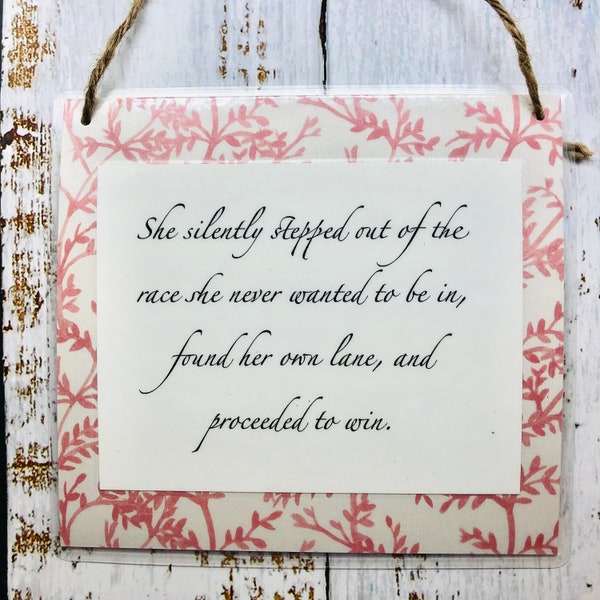 She silently stepped out of the
race she never wanted to be in,
found her own lane, and
proceeded to win.